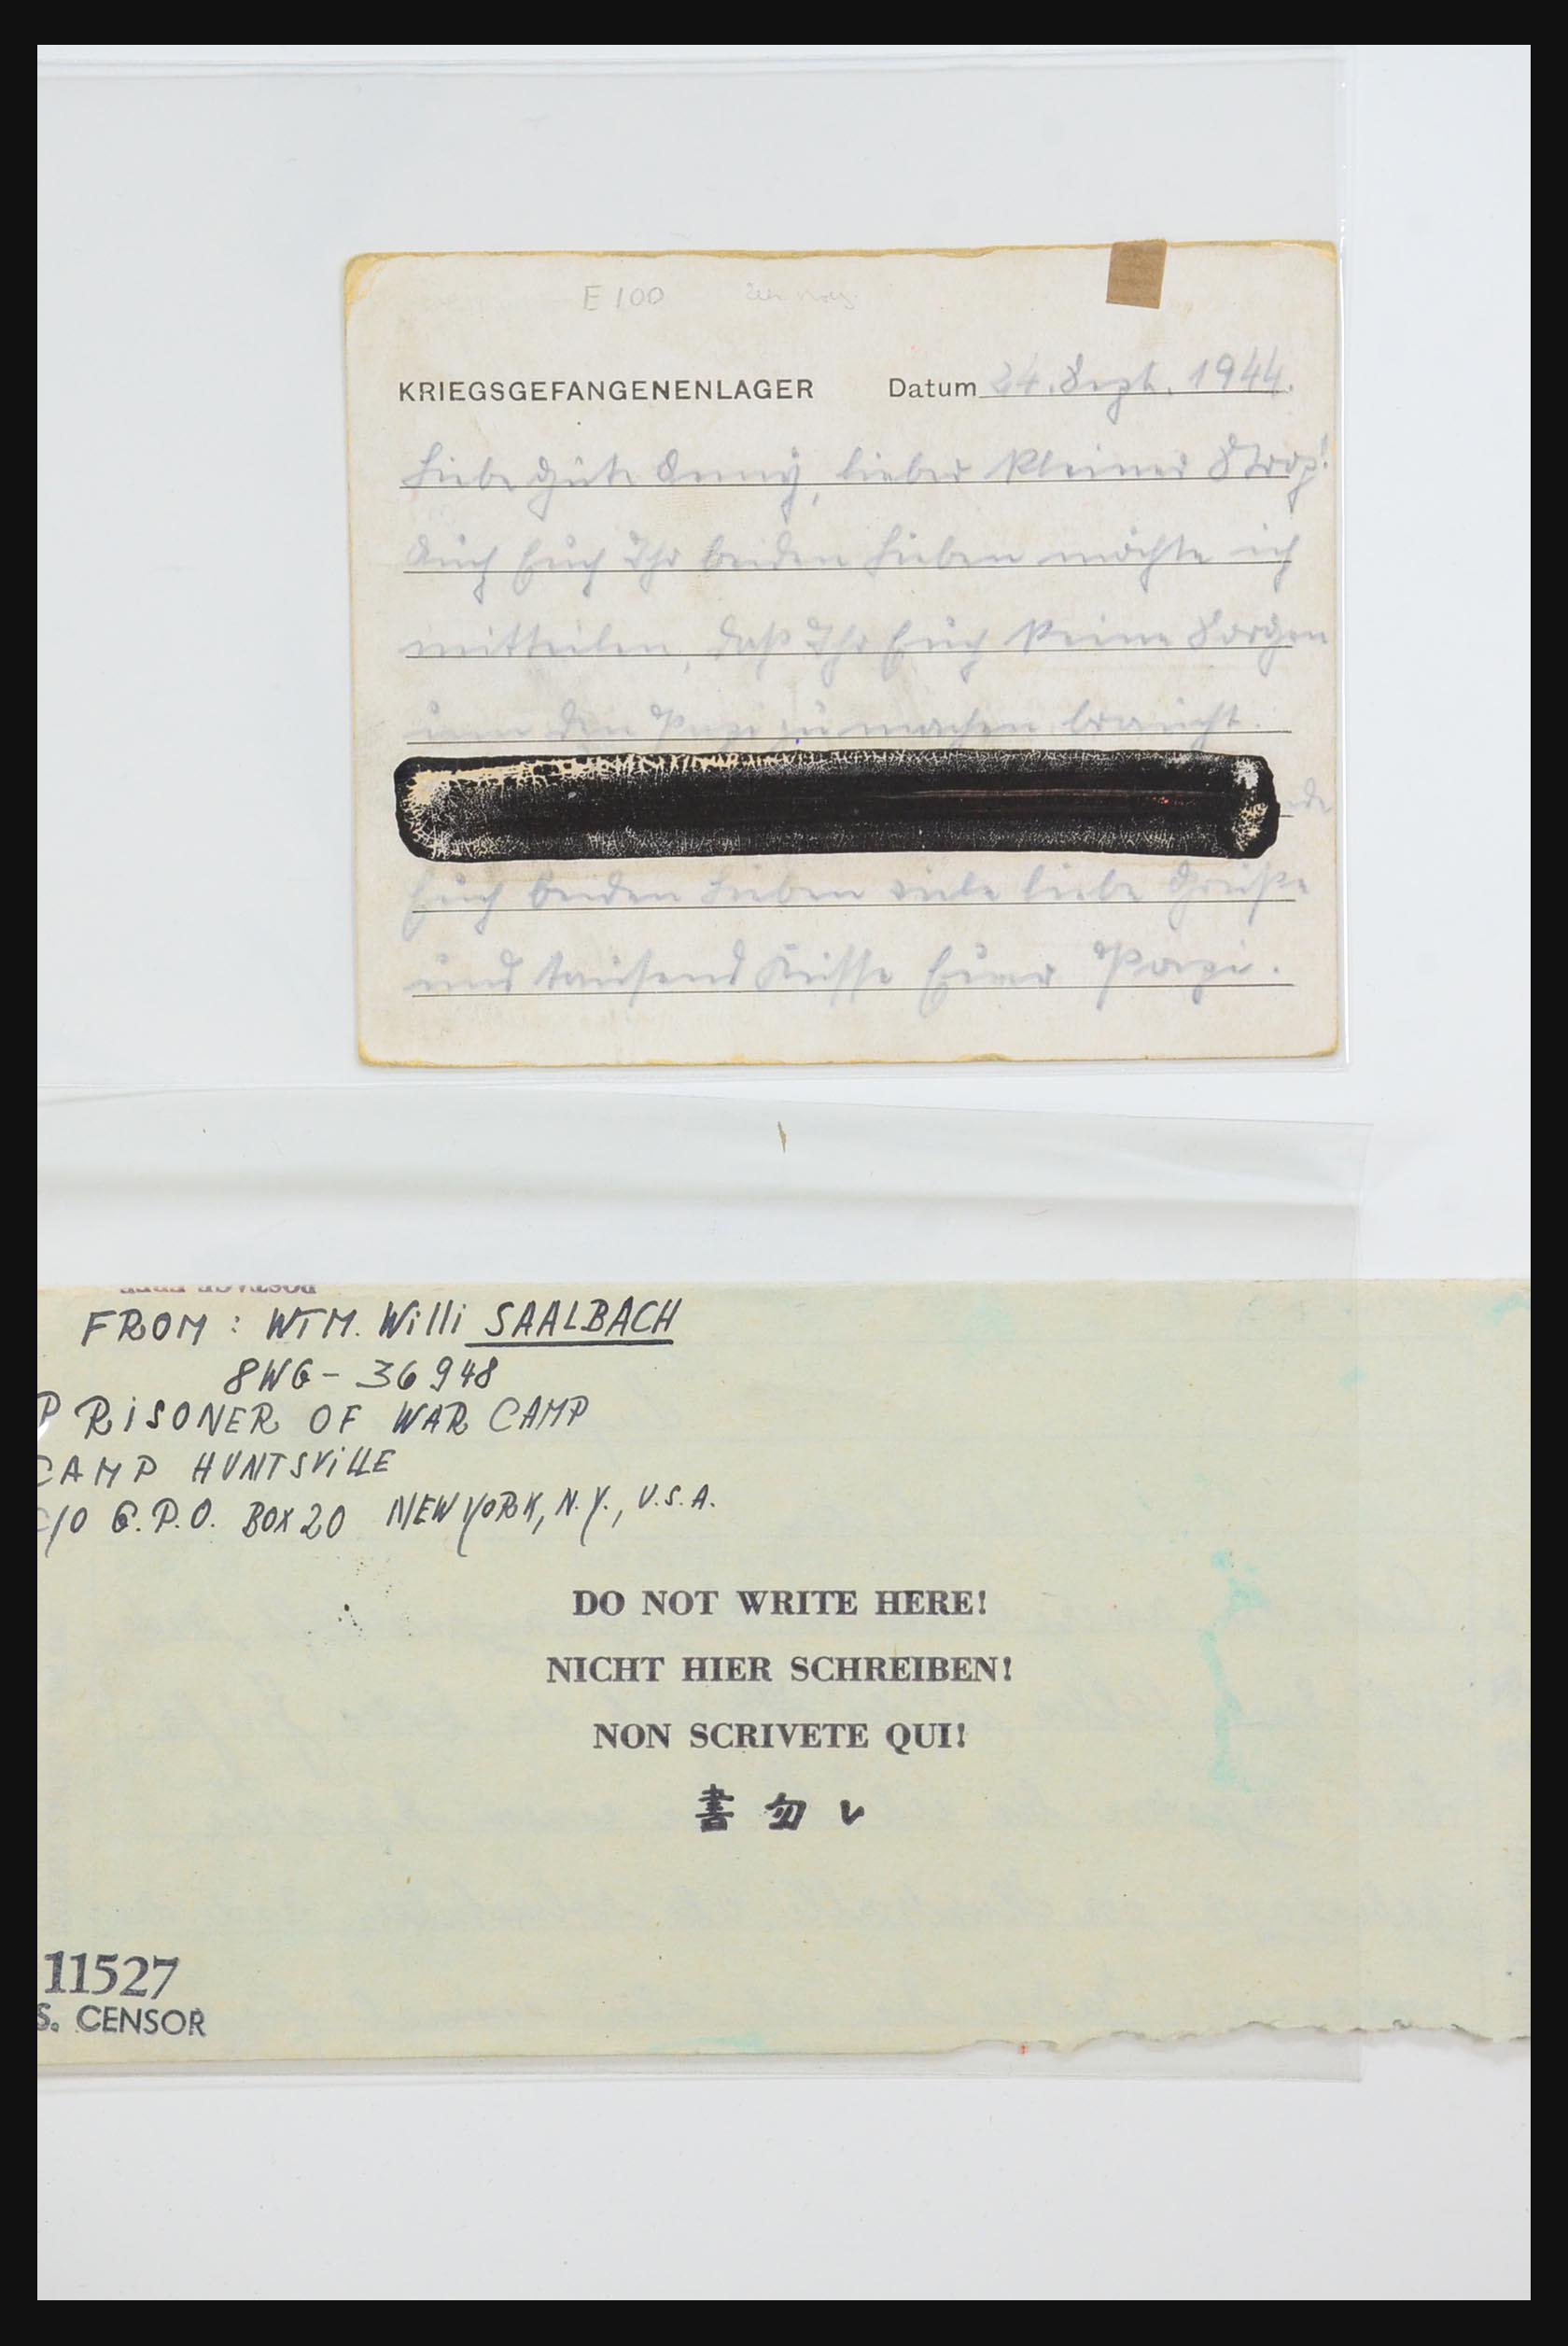 E 100
KRIEGSGEFANGENENLAGER Datum 24. Sept. 1944.
Liebe gute Anny, lieber kleiner
Auch Euch Ihr beiden Lieben möchte ich
mitteilen, daß Ihr Euch keine Sorgen
um den Papi zu machen braucht.
Euch beiden Lieben viele liebe Grüße
und tausend Küsse Euer Papi.
POSTAGE FREE
FROM: WTM. Willi SAALBACH
8WG-36948
PRISONER OF WAR CAMP
CAMP HUNTSVILLE
C/O G.P.O. BOX 20 NEW YORK, N.Y., U.S.A.
DO NOT WRITE HERE!
NICHT HIER SCHREIBEN!
NON SCRIVETE QUI!
書 勿 レ
11527
S. CENSOR